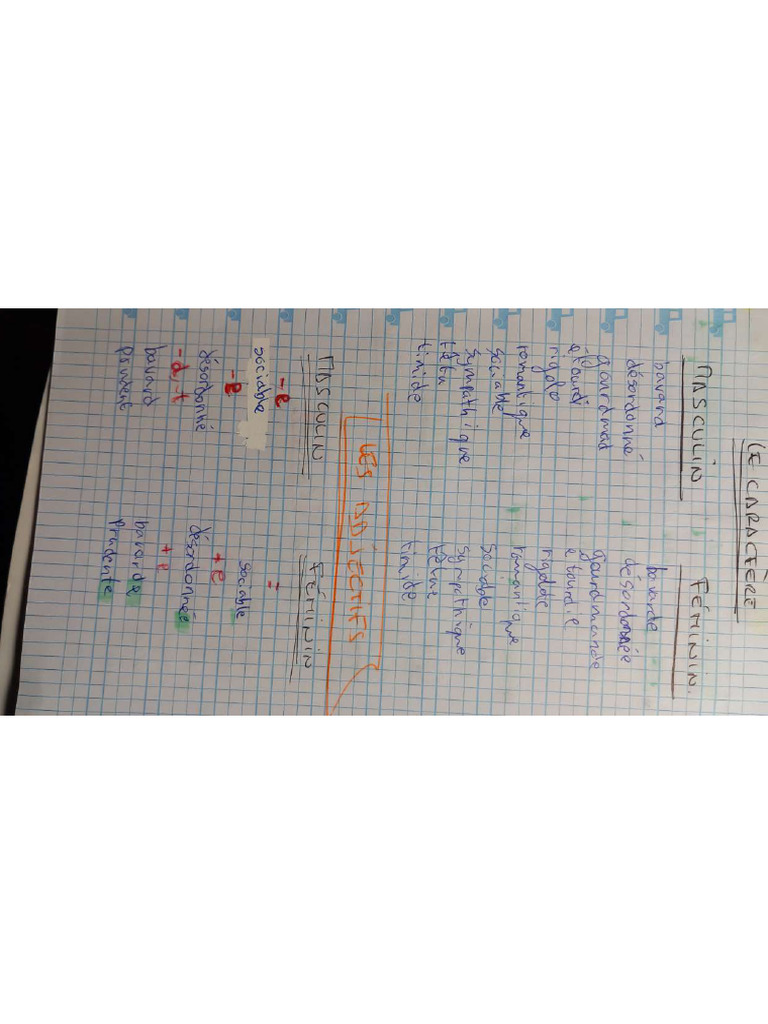 LE CARACTÈRE
MASCULIN FÉMININ.
bavard bavarde
désordonné désordonnée
gourmad gourmande
étourdi etourdie
rigolo rigolote
romantique romantique
sociable sociable
sympathique sympathique
têtu têtue
timide timide
LES ADJECTIFS
MASCULIN FÉMININ
-e =
sociable sociable
-é +e
désordonné désordonnée
-d, -t +e
bavard bavarde
prudent prudente